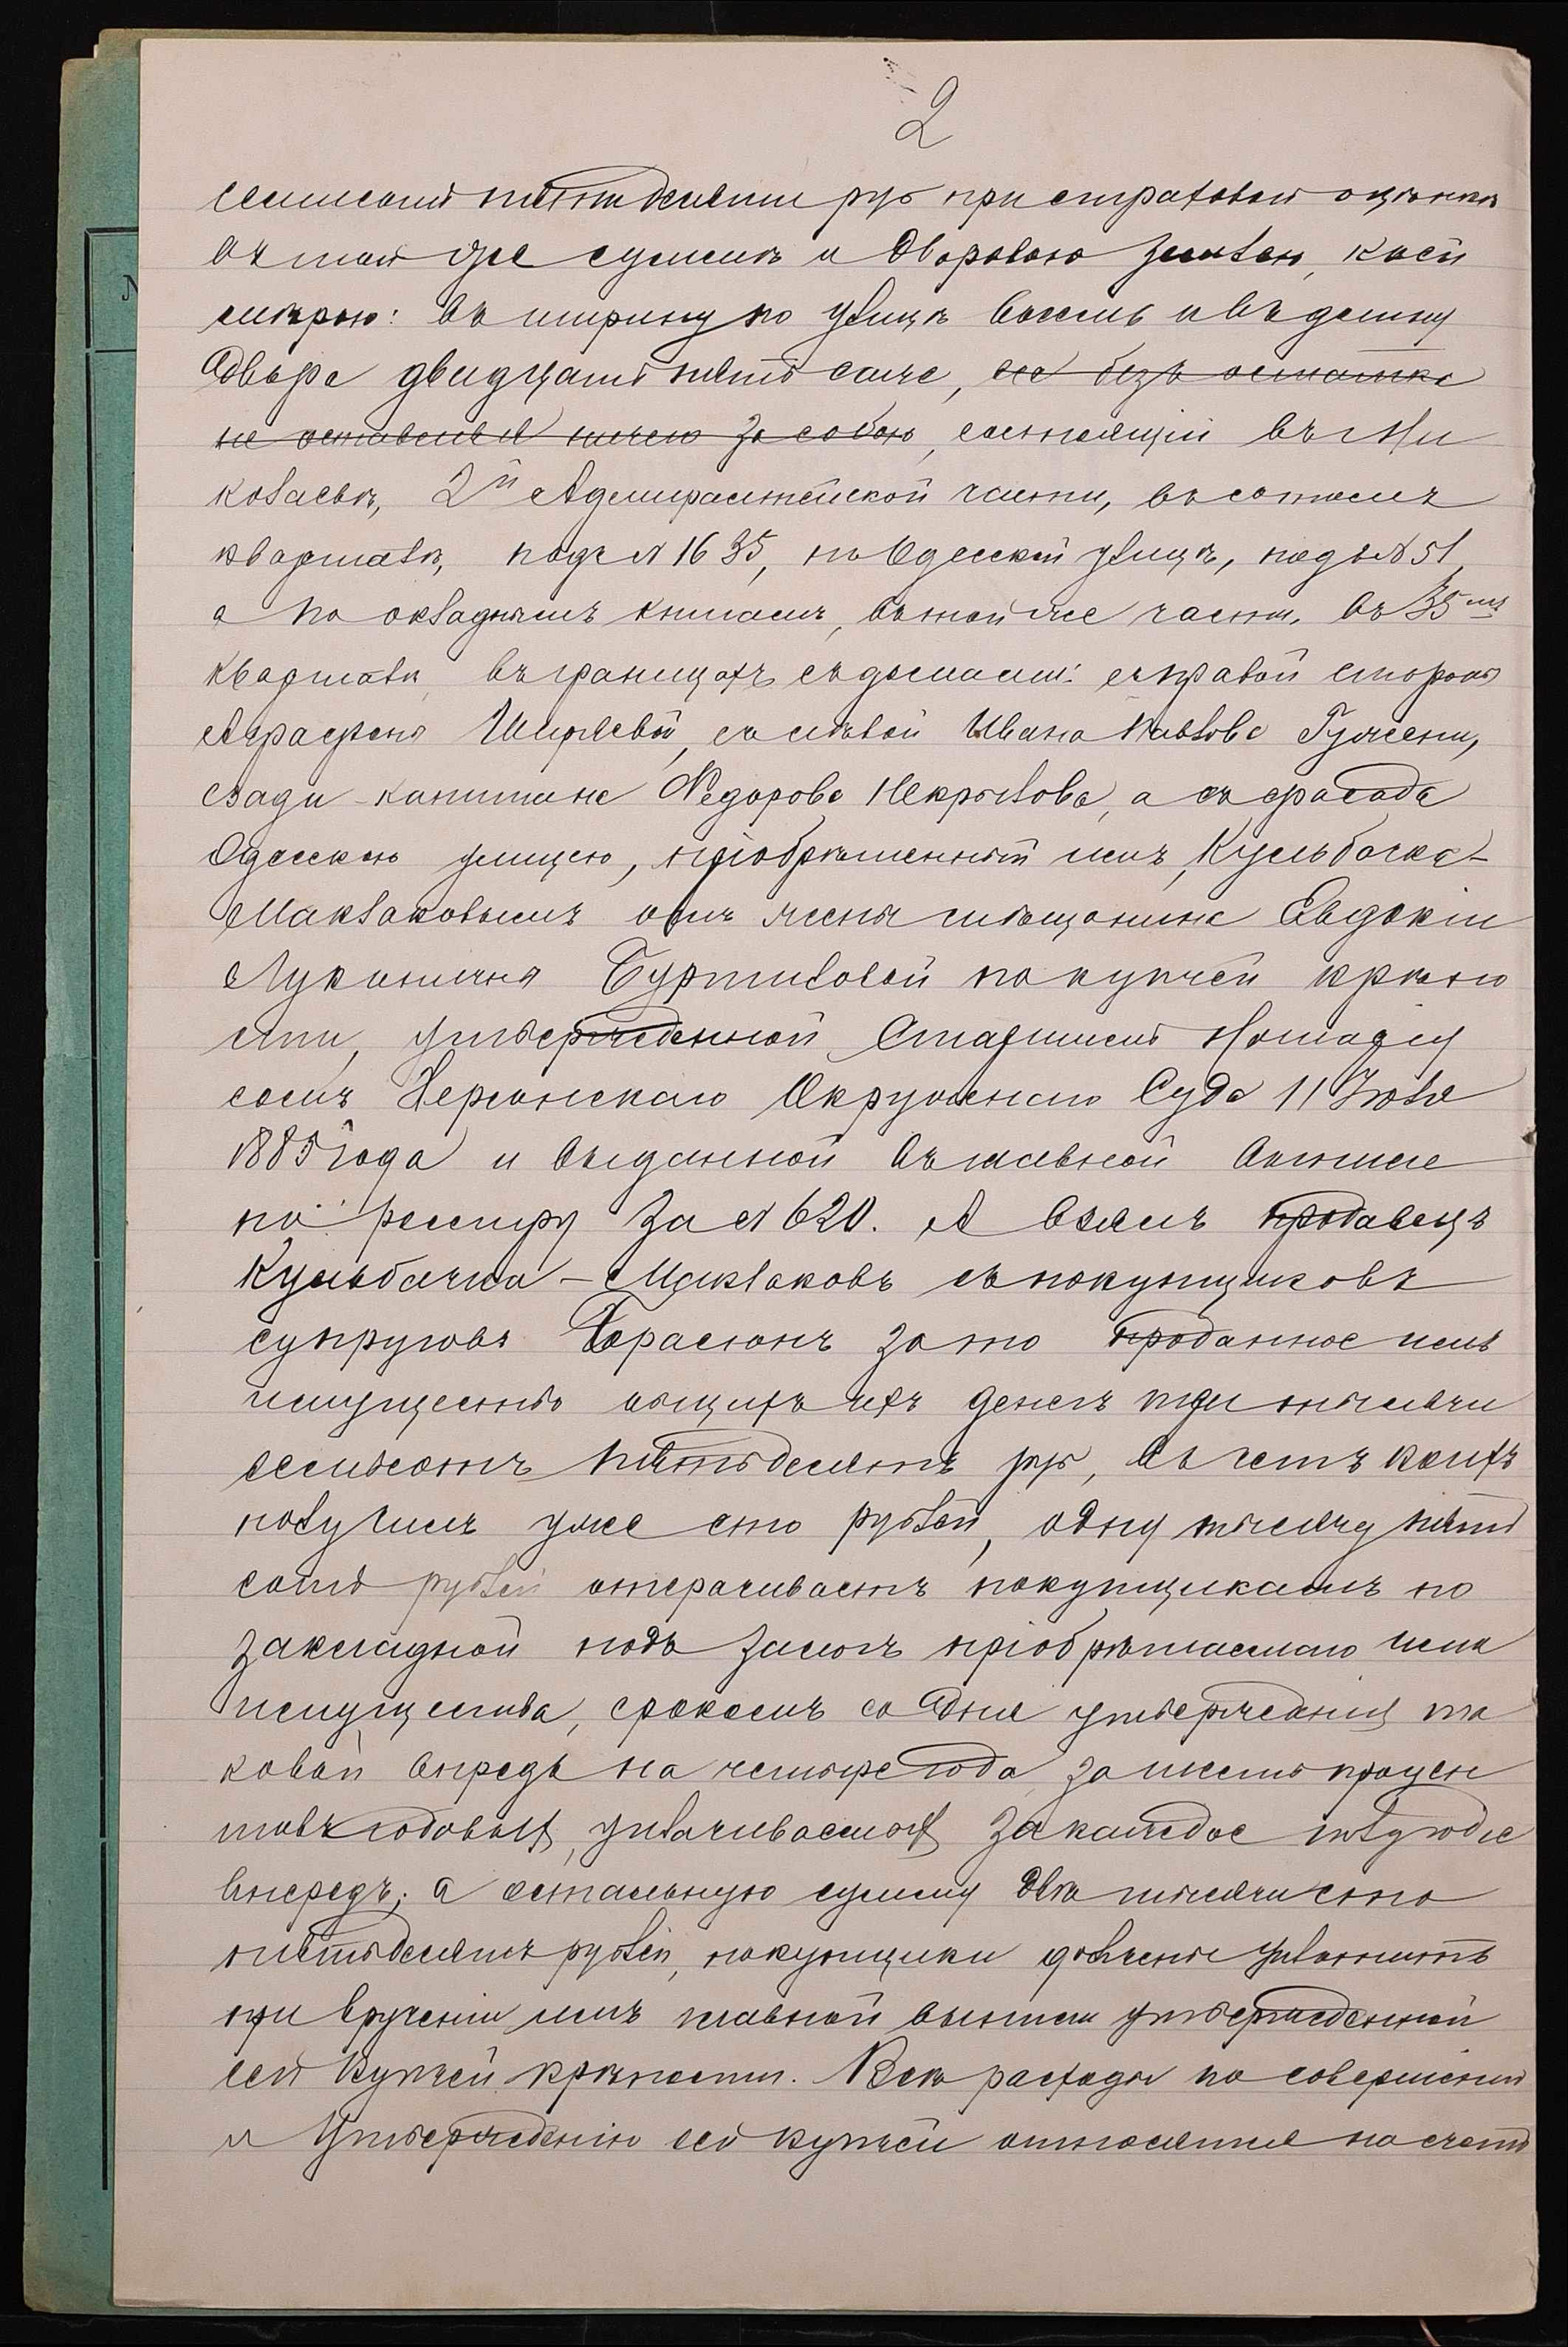 2
семисотъ пятидесяти руб при страховой оцѣнкѣ
въ той же суммѣ и дворовою землею, коей
мѣрою: въ ширину по улицѣ восемь и въ длину
двора двадцать пять саже, все безъ остатка
не оставляя ничего за собою, состоящій въ г Ни
колаевѣ, 2й Адмиралтейской части, въ
кварталѣ, подъ № 1635, по Одесской улицѣ, подъ № 51,
а по окладнымъ книгамъ, въ той же части, въ 35мъ
кварталѣ, въ границахъ съ домами: съ правой стороны
Аграфены Ширяевой, съ лѣвой Ивана Павлова Гужели,
сзади капитана Федорова Некрылова, а съ фасада
Одесскою улицею, пріобрѣтенный имъ, Кульбачка-
Маклаковымъ отъ жены мѣщанина Евдокіи
Лукиничны Бурмиловой по купчей крѣпо
сти, утвержденной Старшимъ Нотаріу
сомъ Херсонскаго Окружнаго Суда 11 Іюля
1885 года и выданной въ главной выписе
по реестру за № 620. А взялъ продавецъ
Кульбачка-Маклаковъ съ покупщиковъ
супруговъ Герасюнъ за то проданное имъ
имущество общихъ ихъ денегъ три тысячи
семьсотъ пятьдесятъ руб, въ счетъ коихъ
получилъ уже сто рублей, одну тысячу пять
сотъ рублей отсрачиваетъ покупщикамъ по
закладной подъ залогъ пріобрѣтаемаго ими
имущества, срокомъ со дня утвержденія та
ковой впредь на четыре года, за шесть процен
товъ годовыхъ, уплачиваемыхъ за каждое полугодіе
впередъ; а остальную сумму двѣ тысячи сто
пятьдесятъ рублей, покупщики должны уплатить
при врученіи имъ главной выписи утвержденной
сей купчей крѣпости. Всѣ расходы по совершенію
и утвержденію сей купчей относятся на счетъ